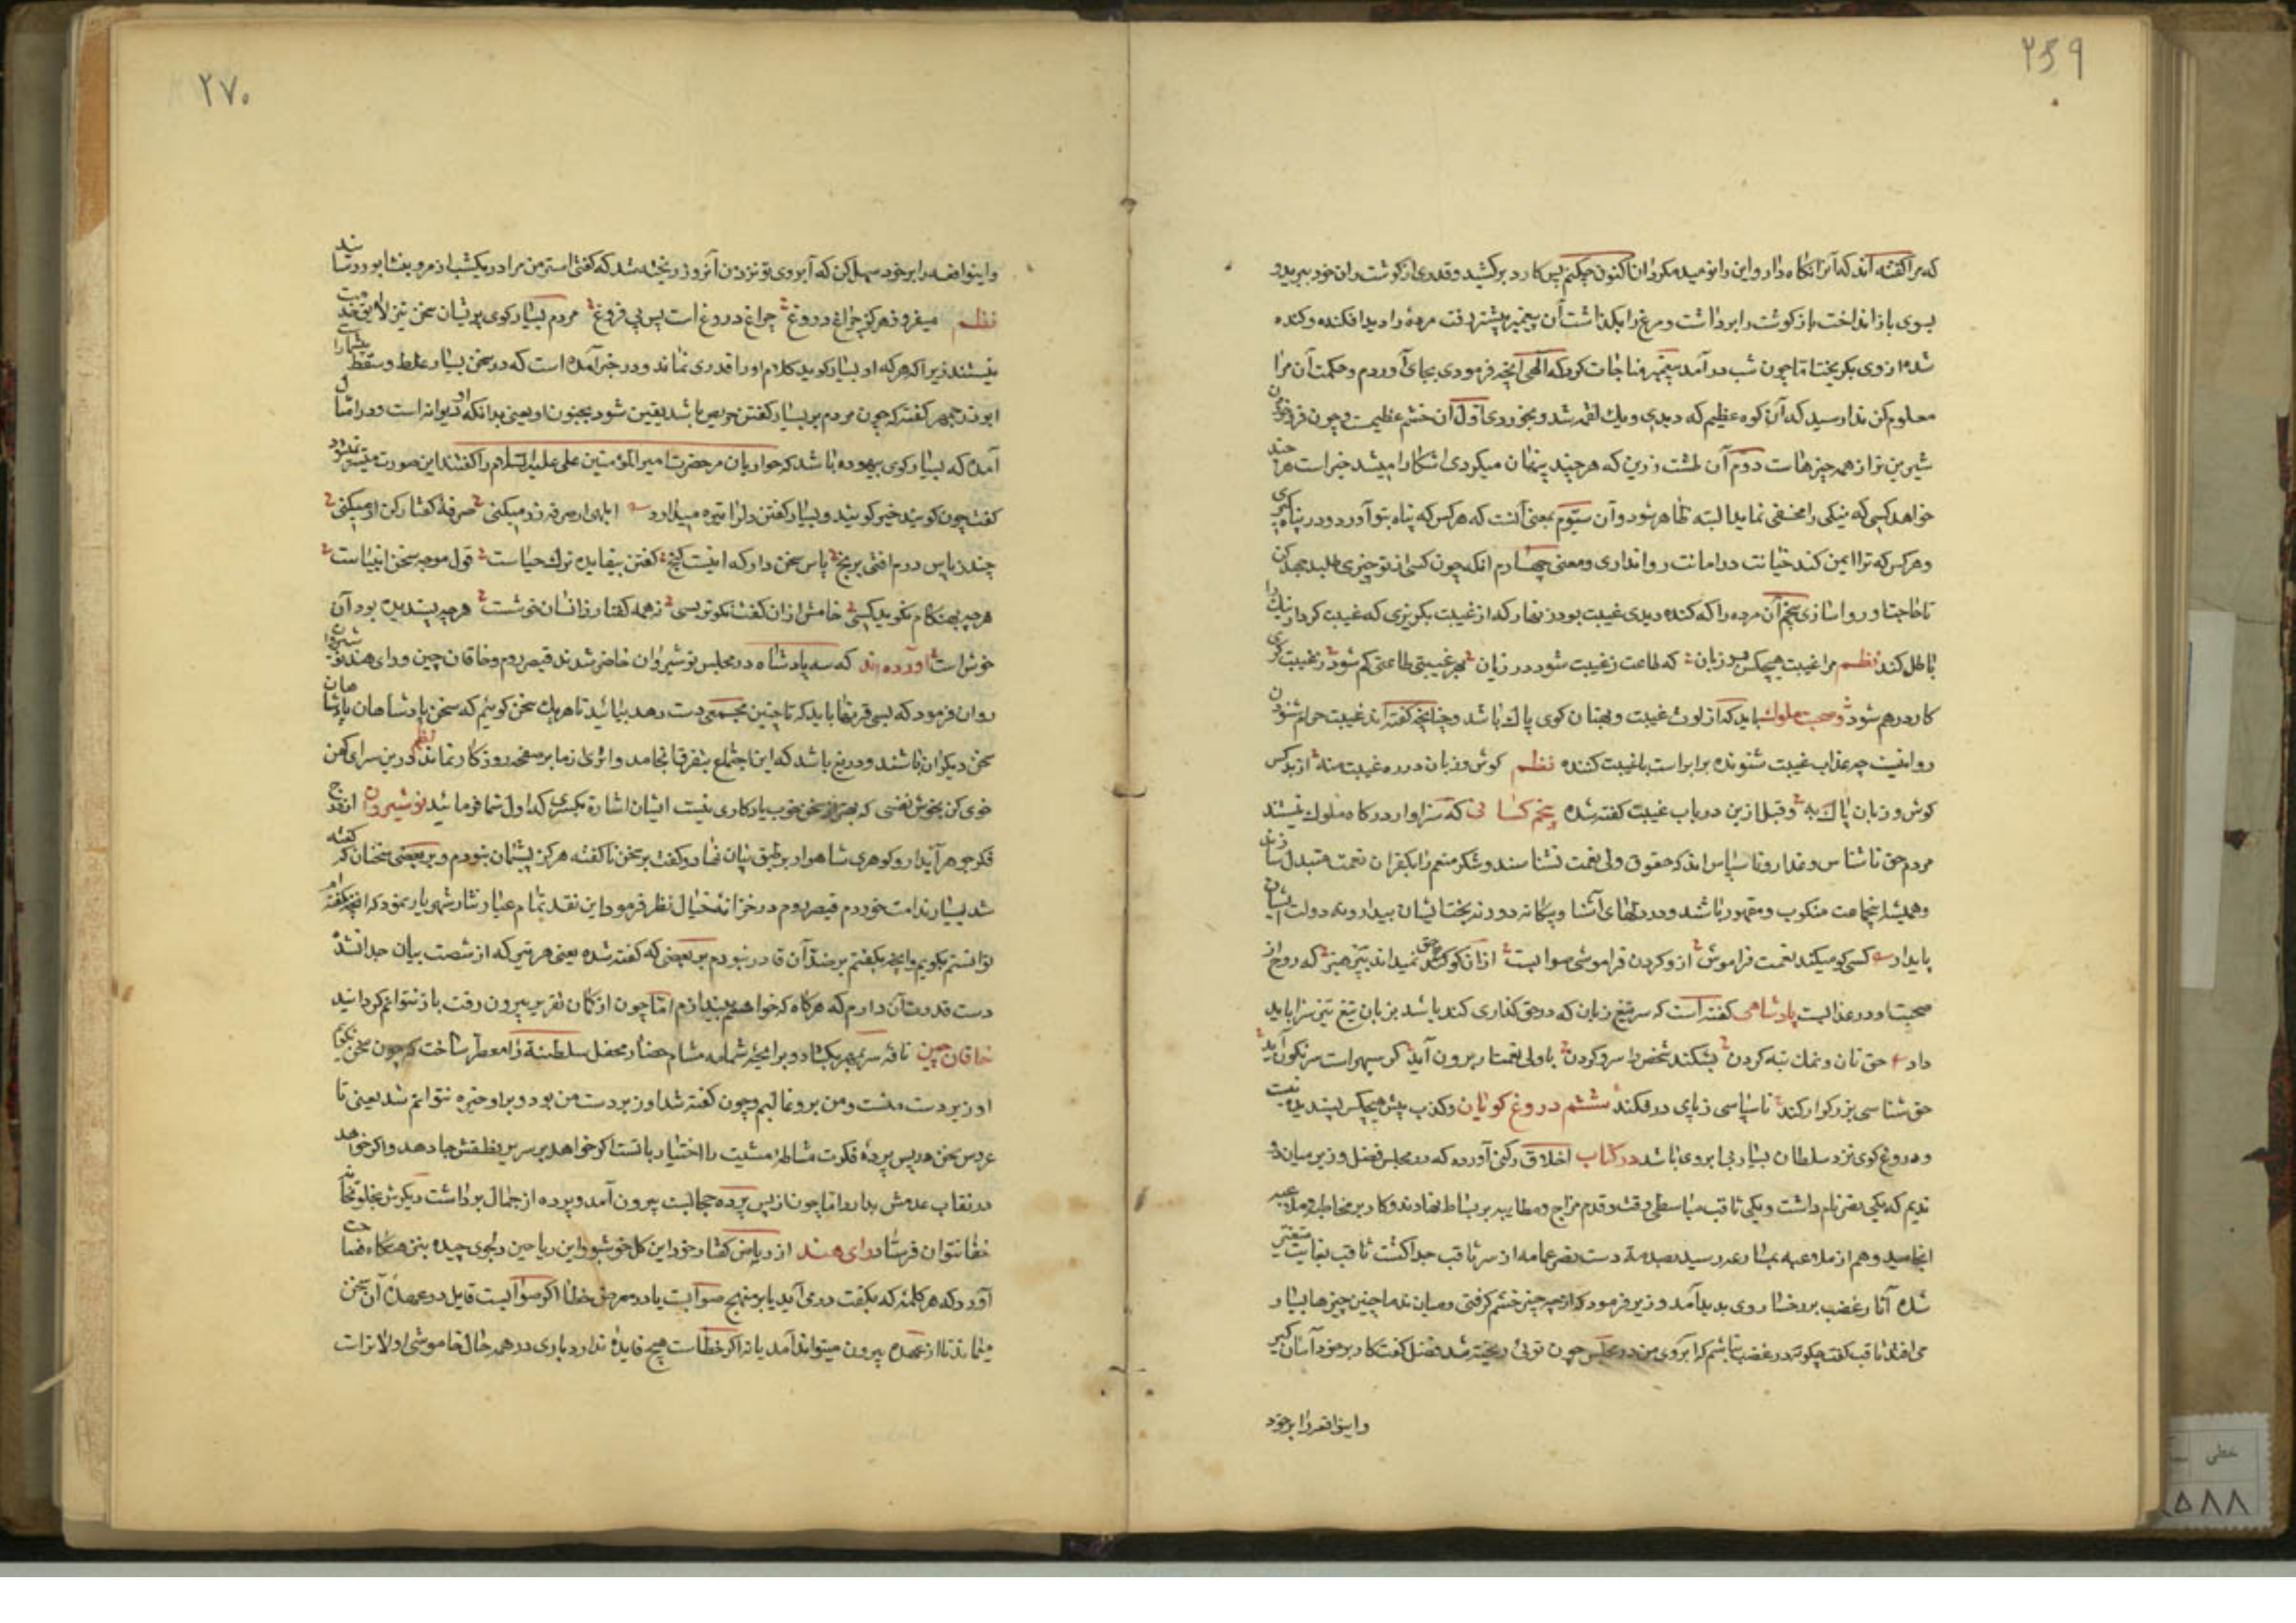 ۲۶۹
که مرا گفته اند که آنرا نگاه دار و این را نومید مکردان اکنون چکنم پس کارد برکشید و قدری از گوشت ران خود ببرید و
بسوی باز انداخت باز گوشت را برداشت و مرغ را بگذاشت آن پیغمبر پیشتر رفت مردهٔ را دید افکنده و کنده
شده از وی بگریخت تا چون شب درآمد پیغمبر مناجات کرد که الهی آنچه فرمودی بجای آوردم و حکمت آن مرا
معلوم کن ندا رسید که آن کوه عظیم که دیدی و یک لقمه شد و بخوردی اول آن خشم عظیمست و چون فرو خوردن
شیرین تر از همه چیزهاست دوم آن طشت زرین که هر چند پنهان میکردی اشکارا میشد خیر است هر چند
خواهد کسی که نیکی را مخفی نماید البته ظاهر شود و آن سیوم بمعنی آنست که هر کس که پناه بتو آورد و در پناه گیری
و هر کس که ترا امین کند خیانت در امانت روا نداری و معنی چهارم آنکه چون کسی از تو چیزی طلبد جهد کن
تا حاجت او روا سازی پنجم آن مرده را که کنده دیدی غیبت بود زنهار که از غیبت بگریزی که غیبت کردار نیک را
باطل کند نظم مرا غیبت هیچکس بر زبان که طاعت ز غیبت شود در زیان بهر غیبتی طاعتی کم شود ز غیبت گری
کار درهم شود و صحبت ملوک باید که از لوث غیبت و بهتان گوی پاک باشد و چنانچه گفته اند غیبت حرام شنودن
روا نیست چه عذاب غیبت شنونده برابر است با غیبت کننده نظم گوش و زبان در ره غیبت منه از بد کس
گوش و زبان پاک به و قبل ازین در باب غیبت گفته شده پنجم کسانی که سزاوار درگاه ملوک نیستند
مردم حق ناشناس و غدار و ناسپاس اند که حقوق ولی نعمت نشناسند و شکر منعم را بکفران نعمت متبدل سازند
و همیشه اینجماعت منکوب و مقهور باشند و در دلهای آشنا و بیگانه دورند بختایشان بیدار و نه دولت ایشان
پایدار کسی کو میکند نعمت فراموش ازو کردن فراموشی صوابست از آن کو حق نمیداند بپرهیز که روح از
صحبت او در عذابست پادشاهی گفته است که سر تیغ زبان که در حق گذاری کند باشد بزبان تیغ تیز سزا باید
داد حق نان و نمک تبه کردن بشکند شخص را سر و گردن با ولی نعمت ار برون آید گر سپهر است سرنگون آید
حق شناسی بزرگوار کند ناسپاسی ز پای در فکند ششم دروغ گویان و کذب پیش هیچکس پسندیده نیست
و دروغ گوی نزد سلطان بسیار بی ابروی باشد در کتاب اخلاق رکنی آورده که در مجلس فضل وزیر میان دو
ندیم که یکی نضر نام داشت و یکی ثاقب مباسطی رفت و قدم مزاح و مطایبه بر بساط نهادند و کار بر مخاطره و ملاعبه
انجامید و هم از ملاعبه بمشارعه رسید بصدمهٔ دست نضر عمامه از سر ثاقب جدا گشت ثاقب بغایت متغیر
شده آثار غضب بر رخسار وی بدید آمد وزیر فرمود که از چه چیز خشم گرفتی و میان ندما چنین چیزها بسیار
می افتد ثاقب گفت چگونه در غضب نباشم که آبروی من در مجلس چون توئی ریخته شد فضل گفت کار بر خود آسان گیر
واینواقعه را بر خود
۲۷۰
واینواقعه را بر خود سهل کن که آبروی تو نزد من آنروز ریخته شد که گفتی استر من مرا در یکشب از مرو بنشابور رسانید
نظم میفروز هرگز چراغ دروغ چراغ دروغ است پس بی فروغ مردم بسیار گوی پریشان سخن نیز لایق خدمت
نیستند زیرا که هر که او بسیار گوید کلام او را قدری نماند و در خبر آمده است که در سخن بسیار غلط و سقط بیشمار
ابوذرجمهر گفته که چون مردم بر بسیار گفتن حریص باشد یقین شود بجنون او یعنی بدانکه او دیوانه است و در امثال
آمده که بسیار گوی بیهوده باشد که حواریان مر حضرت امیر المؤمنین علی علیه السلام را گفتند این صورت میسر نمیشود
گفت چون گویید خیر گویید و بسیار گفتن دلرا تیره میدارد
چند ز یاس درم افتی برنج پاس سخن دار که اینست گنج گفتن بیفایده ترک حیاست قول موجه سخن انبیاست
هر چه بهنگام نگوید کسی خامش از آن گفت نکوتر بسی ز همه گفتار زانسان خوشست هر چه پسندیده بود آن
خوش است آورده اند که سه پادشاه در مجلس نوشیروان حاضر شدند قیصر روم و خاقان چین و رای هند نوشیر
روان فرمود که بسی قرنها باید که تا چنین مجمعی دست دهد بیائید تا هر یک سخن گوئیم که سخن پادشاهان پادشاهان
سخن دیگران باشند و دریغ باشد که این اجتماع بتفرق انجامد و اثری ز ما بر صفحه روزگار نماند نظم درین سرای کهن
خوی کن بخوش نفسی که بهتر از سخن خوب یادگاری نیست ایشان اشاره بکسری که اول شما فرمائید نوشیروان از درج
فکر جوهر آبدار و گوهری شاهوار بر طبق بیان نهاد و گفت بر سخن ناگفته هرگز پشیمان نبودم و بر بعضی سخنان که گفته
شد بسیار ندامت خوردم قیصر روم در خزانهٔ خیال نظر فرمود این نقد تمام عیار نثار شهریار نمود که آنچه نگفته ام
توانستم بگویم و آنچه بگفتم بر ضد آن قادر نبودم بر بعضی که گفته شده یعنی هر تیر که از شصت بیان جدا نشد
دست قدرت آن دارم که هرگاه که خواهم بیندازم اما چون از کمان تقریر بیرون رفت باز نتوانم گردانید
خاقان چین نافه سر بمهر بکشاد و برایحهٔ شمامه مشام حضار محفل سلطنة را معطر ساخت که چون سخن نگویم
او زیر دست منست و من برو غالبم و چون گفته شد او زبر دست من بود و بر او خیره نتوانم شد یعنی تا
عروس سخن در پس پردهٔ فکرت مشاطهٔ مشیت را اختیار باقیست اگر خواهد بر سریر نطقش جا دهد و اگر خواهد
در نقاب عدمش بدارد اما چون از پس پرده حجابست بیرون آمد و پرده از جمال برداشت دیگرش بخلوتخانه
خفا نتوان فرستاد رای هند از ریاض گفتار خود این گل خوشبو و این ریاحین دلجوی چیده بنزهتگاه فصاحت
آورد که هر کلمه که بگفت در می آید یا بر منهج صوابست یا در معرض خطا اگر صوابست قایل در عهدهٔ آن سخن
میماند تا از عهده بیرون میتواند آمد یا نه اگر خطاست هیچ فایده ندارد باری در همه حال خاموشی اولاتر است
خطی
۵۸۸